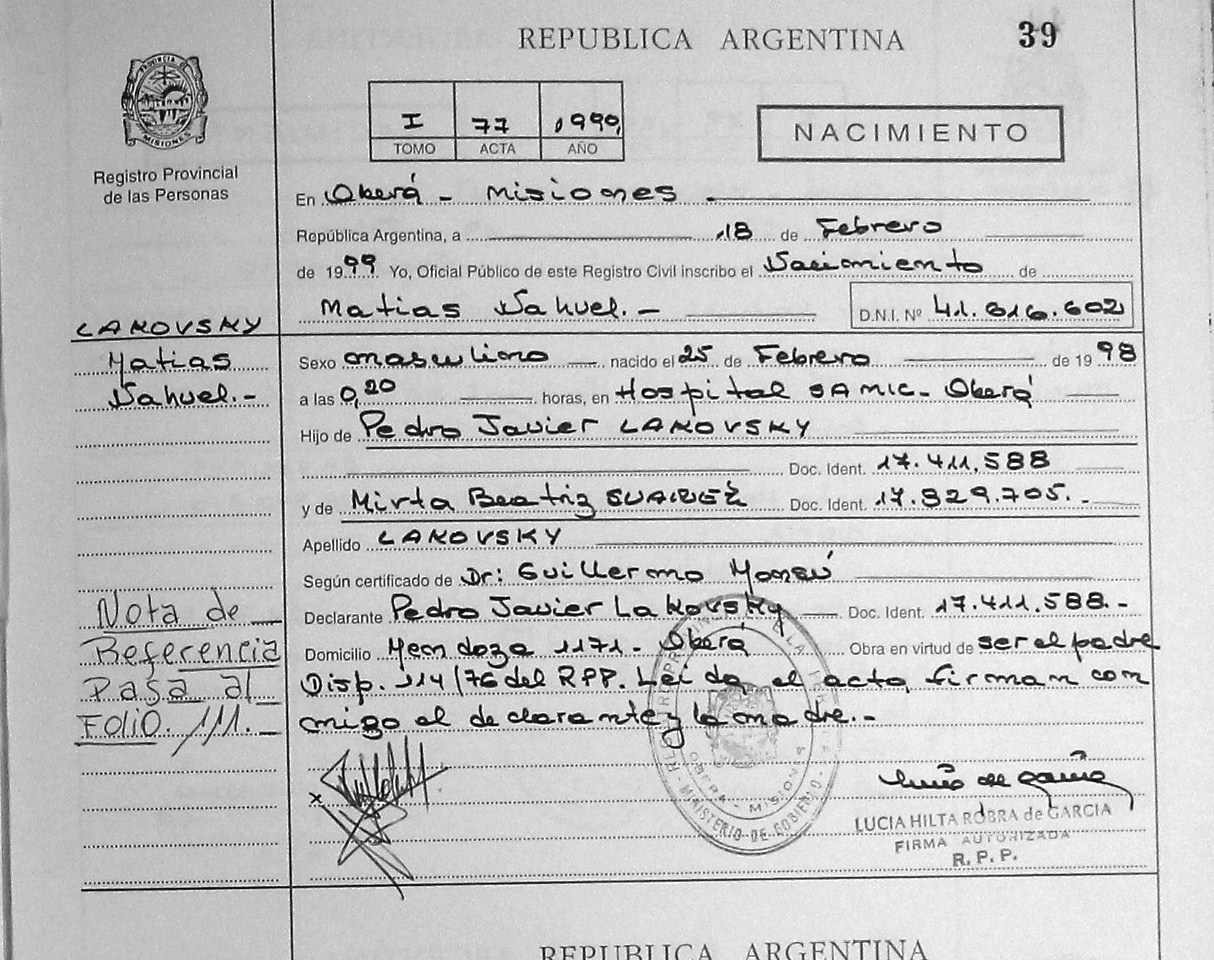 REPUBLICA ARGENTINA 39
PROVINCIA DE MISIONES
Registro Provincial
de las Personas
I 77 1999
TOMO ACTA AÑO
NACIMIENTO
En Oberá - Misiones.
República Argentina, a 18 de Febrero
de 1999 Yo, Oficial Público de este Registro Civil inscribo el Nacimiento de
Matias Nahuel.-
D.N.I. Nº 41.816.602
LAKOVSKY
Matias
Nahuel.-
Sexo masculino nacido el 25 de Febrero de 1998
a las 0,20 horas, en Hospital SAMIC - Oberá
Hijo de Pedro Javier LAKOVSKY
Doc. Ident. 17.411.588
y de Mirta Beatriz SUAREZ Doc. Ident. 17.829.705.-
Apellido LAKOVSKY
Según certificado de Dr: Guillermo
Declarante Pedro Javier Lakovsky Doc. Ident. 17.411.588.-
Domicilio Mendoza 1171 - Oberá Obra en virtud de ser el padre
Disp. 114/76 del RPP. Leida el acta, firman con
migo el declarante y la madre.-
Nota de
Referencia
Pasa al
FOLIO. 111.-
MINISTERIO DE GOBIERNO
OBERA - MISIONES
LUCIA HILTA ROBRA de GARCIA
FIRMA AUTORIZADA
R. P. P.
REPUBLICA ARGENTINA